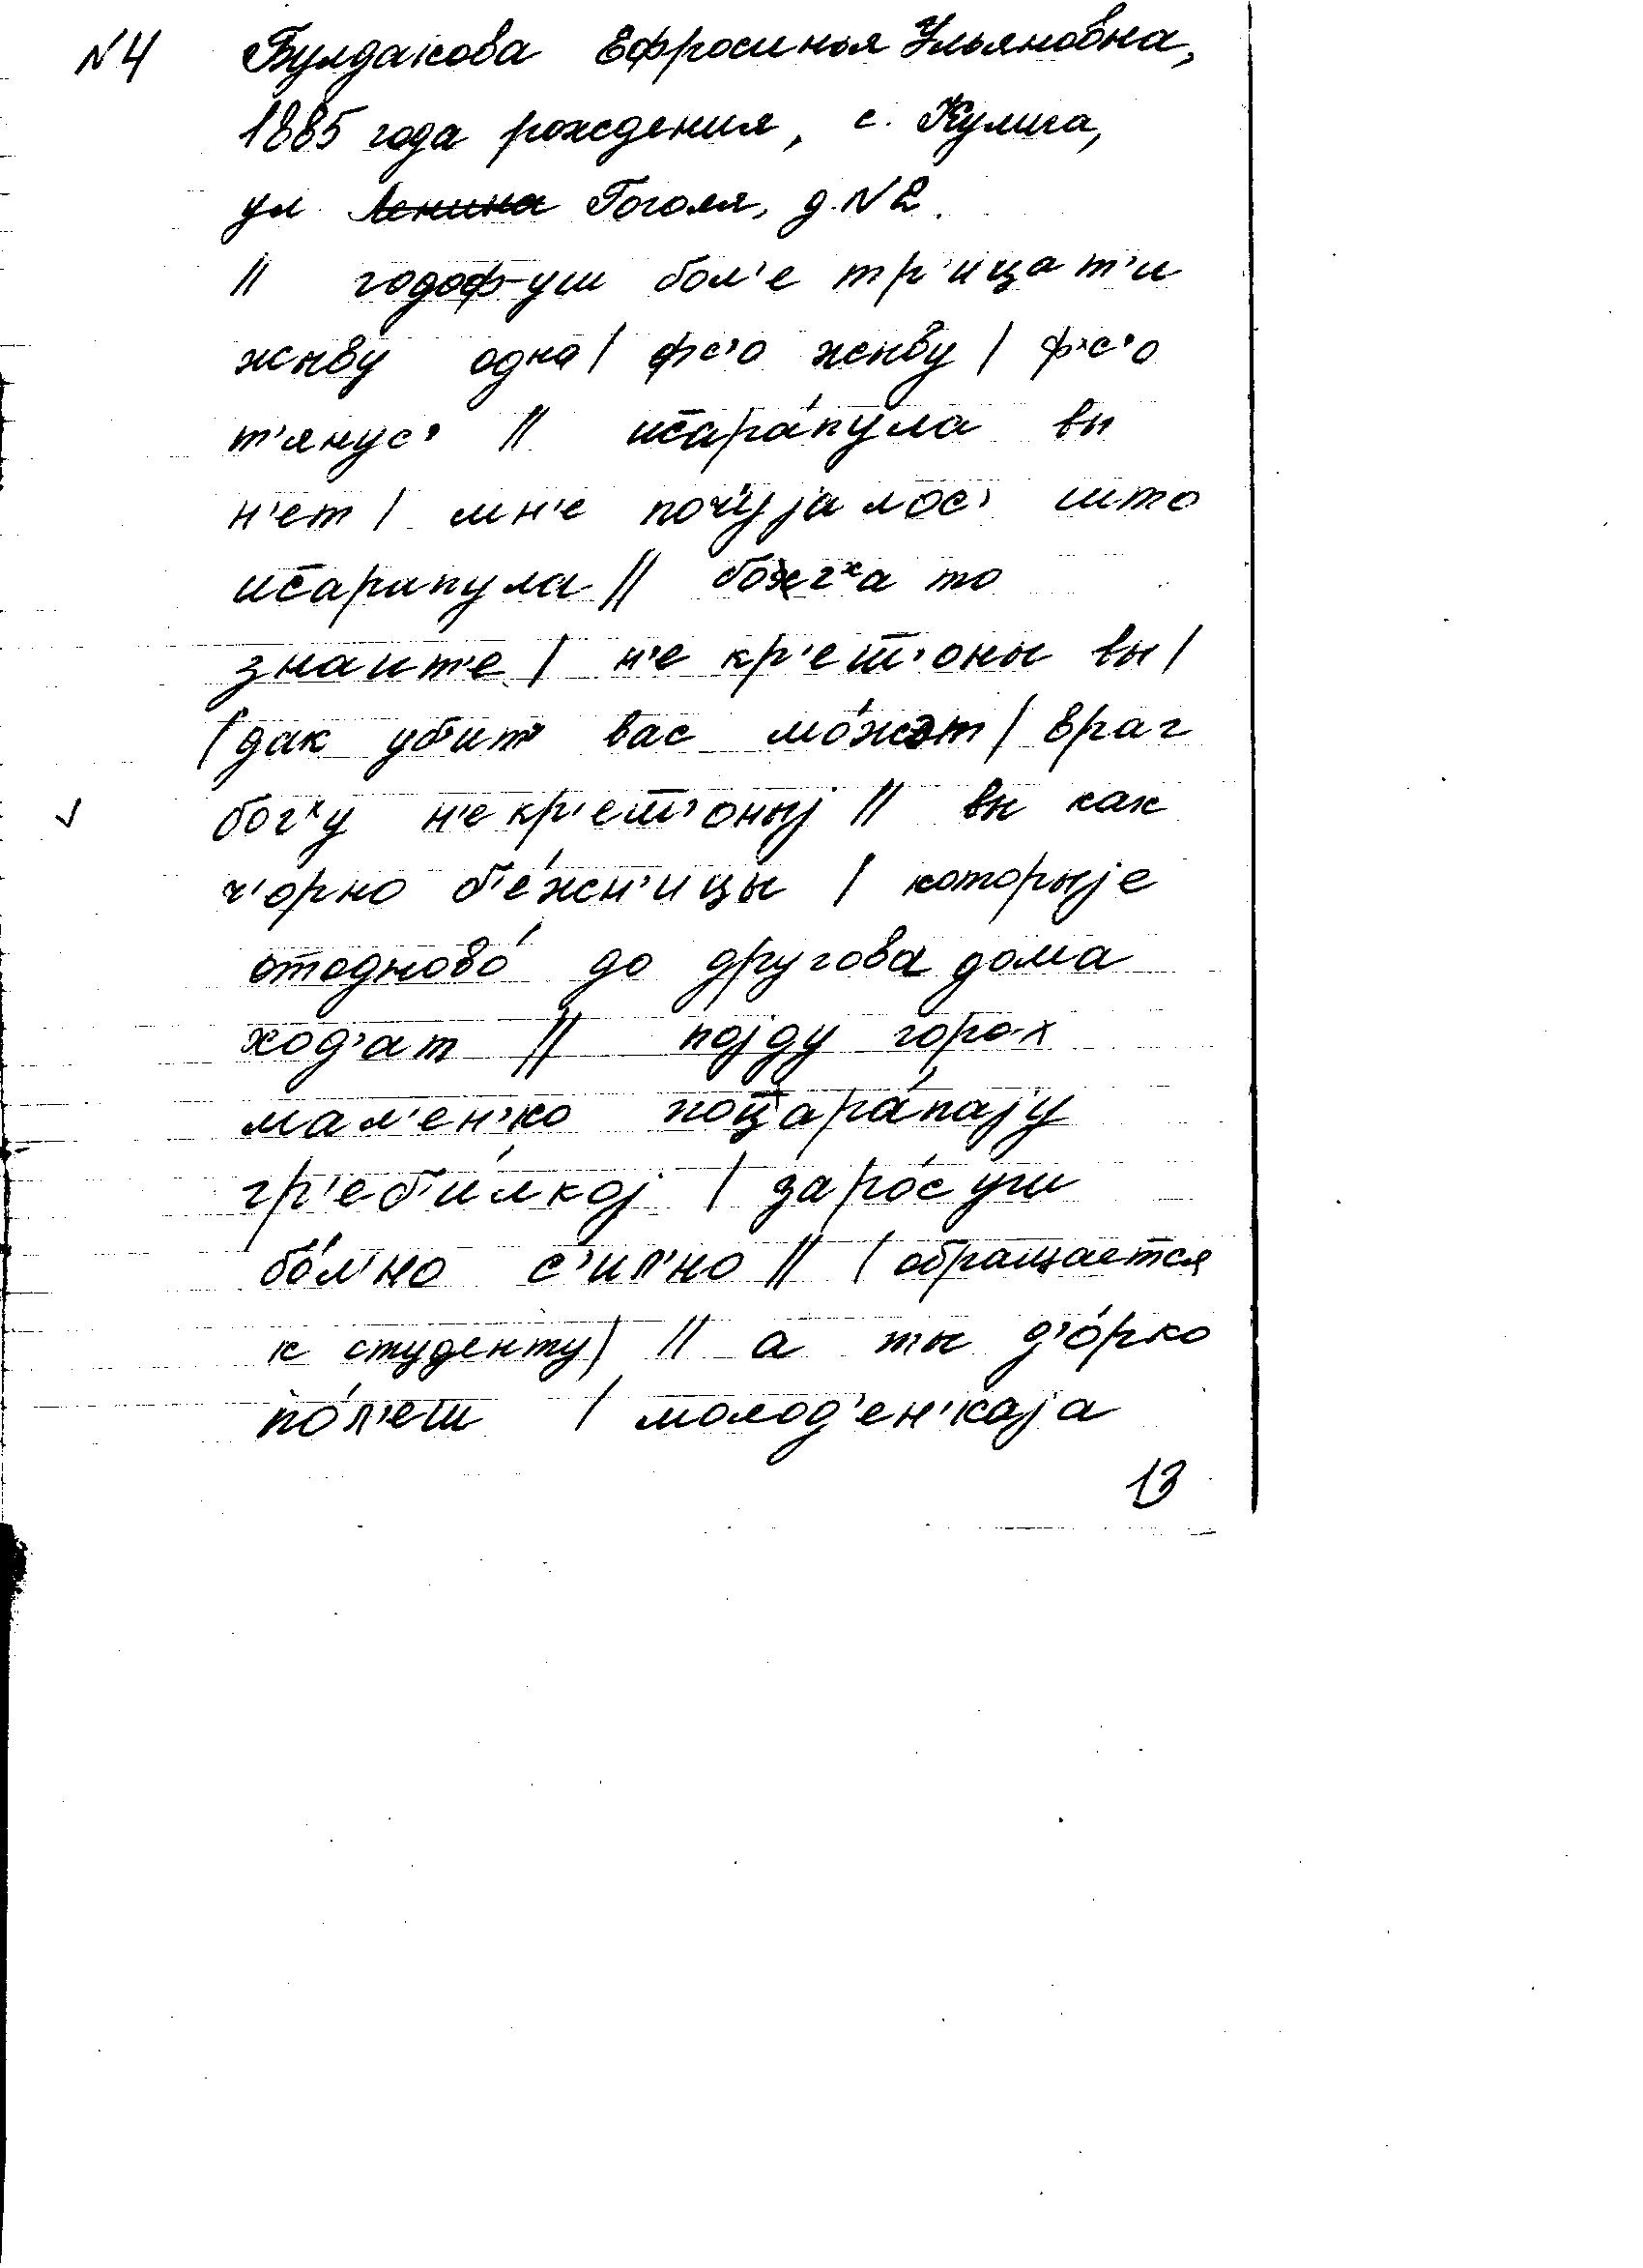 №4 Булдакова Ефросинья Ульяновна,
1885 года рождения, с. Кулига,
ул. Ленина Гоголя, д. №2.
// годоф-уш бол'е тр'ицат'и
жыву одна / фс'о жыву / ф'с'о
т'янус' // ис̄ара́пула вы
н'ет / мн'е почу́јалос' што
ис̄арапула // богˣа то
знаит'е / н'е кр'ешт'оны вы /
/ дак уб'ит' вас мо́жэт / враг
богˣу н'екр'ешт'оныј // вы как
ч'орно б'е́жн'ицы / которыје
отодново́ до другова дома
ход'ат // појду горо-х
мал'ен'ко поцара́пају
гр'еб'и́лкој / заро́с уш
бо́л'но с'ил'но // / обращается
к студенту / // а ты д'о́рко
по́л'еш / молод'ен'каја
13